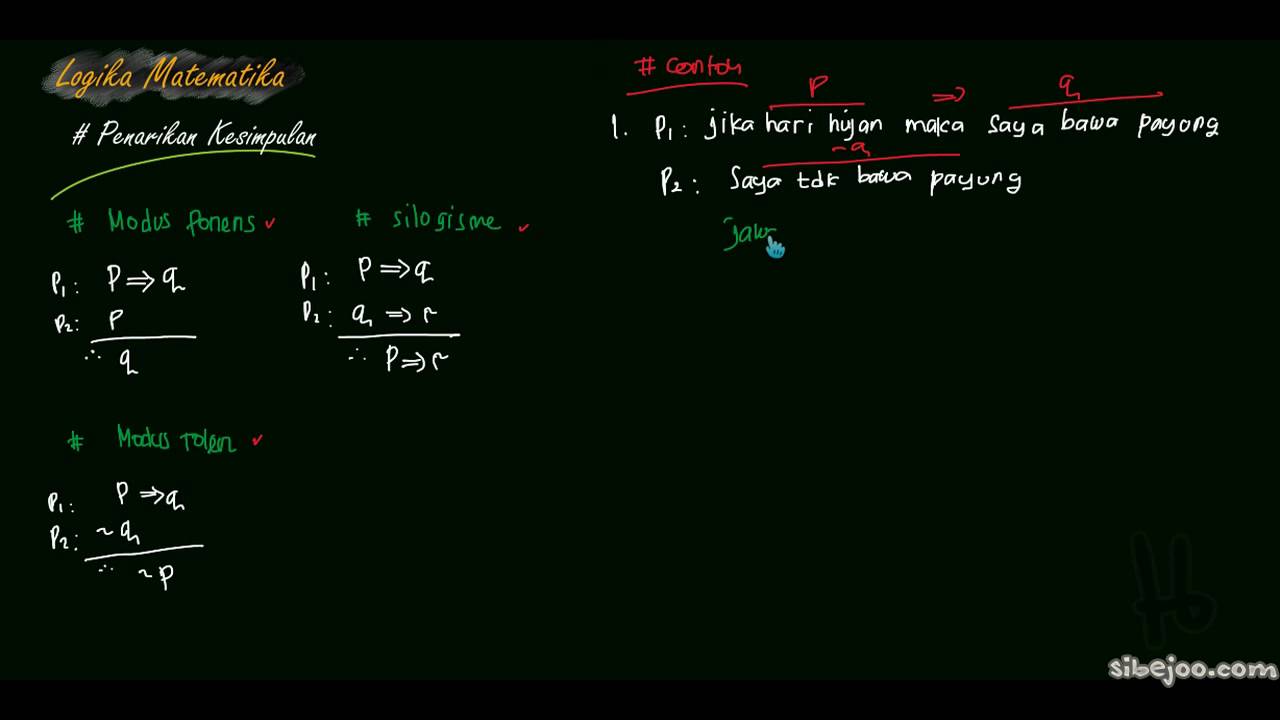 Logika Matematika
# Penarikan Kesimpulan
# Modus Ponens ✓
P₁: P ⇒ q
P₂: P
∴ q
# Silogisme ✓
P₁: P ⇒ q
P₂: q ⇒ r
∴ P ⇒ r
# Modus Tolen ✓
P₁: P ⇒ q
P₂: ~q
∴ ~P
# Contoh
P ⇒ q
1. P₁: jika hari hujan maka saya bawa payung
~q
P₂: Saya tdk bawa payung
jaw
sibejoo.com